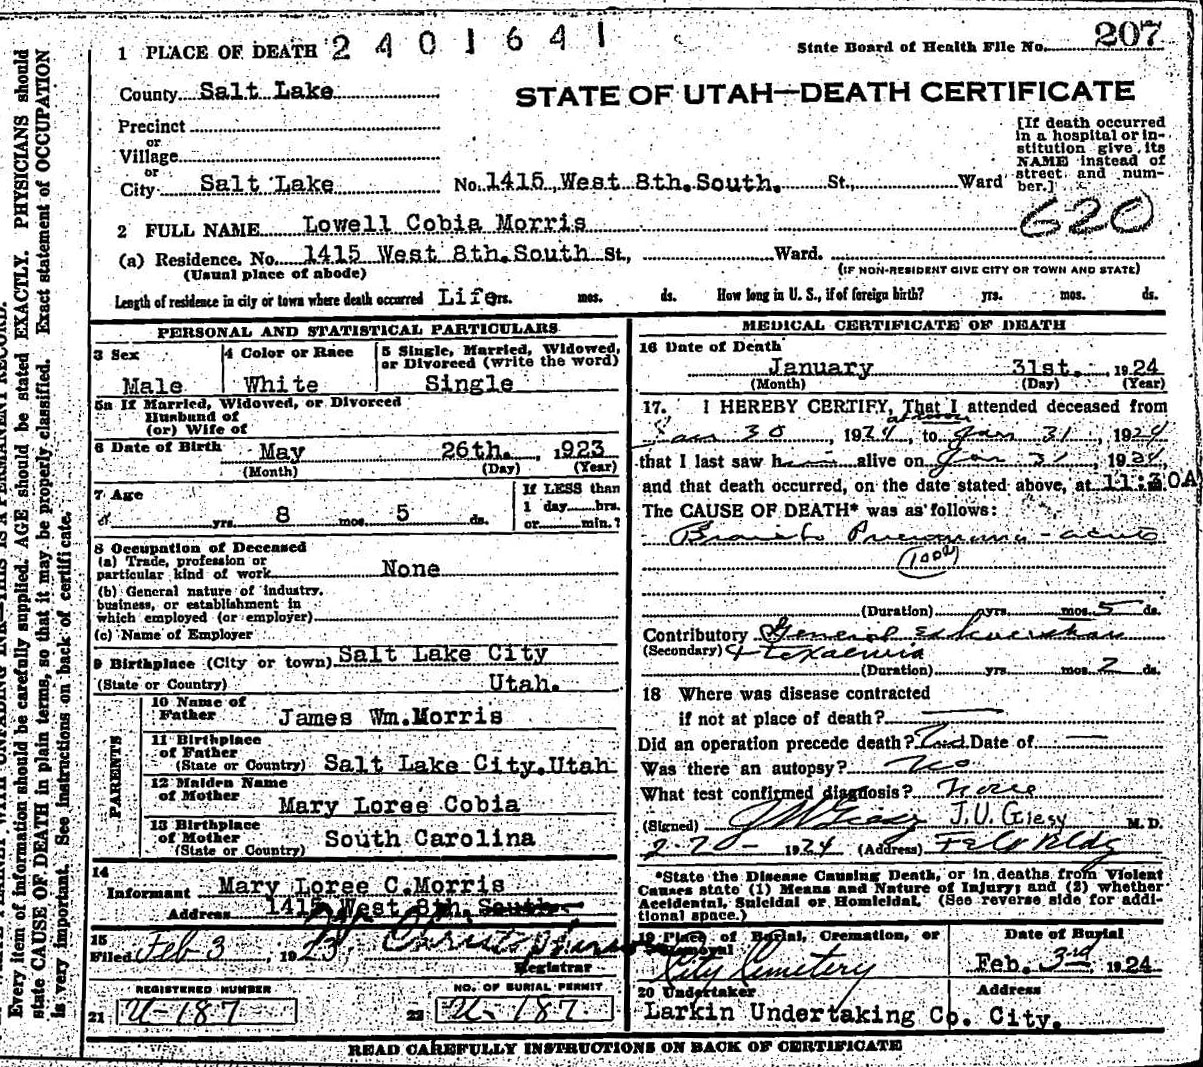 1 PLACE OF DEATH 2 4 0 1 6 4 1
State Board of Health File No. 207
County Salt Lake
STATE OF UTAH—DEATH CERTIFICATE
Precinct
or
Village
or
City Salt Lake No. 1415 West 8th. South. St., Ward
[If death occurred
in a hospital or in-
stitution give its
NAME instead of
street and num-
ber.]
620
2 FULL NAME Lowell Cobia Morris
(a) Residence. No. 1415 West 8th. South St., Ward.
(Usual place of abode)
(IF NON-RESIDENT GIVE CITY OR TOWN AND STATE)
Length of residence in city or town where death occurred Life yrs. mos. ds. How long in U. S., if of foreign birth? yrs. mos. ds.
PERSONAL AND STATISTICAL PARTICULARS
3 Sex
Male
4 Color or Race
White
5 Single, Married, Widowed,
or Divorced (write the word)
Single
5a If Married, Widowed, or Divorced
Husband of
(or) Wife of
6 Date of Birth May 26th. , 1923
(Month) (Day) (Year)
7 Age
yrs. 8 mos. 5 ds.
If LESS than
1 day hrs.
or min.?
8 Occupation of Deceased
(a) Trade, profession or
particular kind of work None
(b) General nature of industry,
business, or establishment in
which employed (or employer)
(c) Name of Employer
9 Birthplace (City or town) Salt Lake City
(State or Country) Utah.
PARENTS
10 Name of
Father James Wm. Morris
11 Birthplace
of Father
(State or Country) Salt Lake City. Utah
12 Maiden Name
of Mother Mary Loree Cobia
13 Birthplace
of Mother
(State or Country) South Carolina
14
Informant Mary Loree C. Morris
Address 1415 West 8th. South.
15
Filed Feb 3, 1923
Registrar
REGISTERED NUMBER
21 U-187
NO. OF BURIAL PERMIT
22 U-187
MEDICAL CERTIFICATE OF DEATH
16 Date of Death
January 31st. , 1924
(Month) (Day) (Year)
17. I HEREBY CERTIFY, That I attended deceased from
Jan 30, 1924, to Jan 31, 1924
that I last saw him alive on Jan 31, 1924
and that death occurred, on the date stated above, at 11:30A m.
The CAUSE OF DEATH* was as follows:
Broncho Pneumonia - acute
(Duration) yrs. mos. 5 ds.
Contributory General
(Secondary) + toxaemia
(Duration) yrs. mos. 2 ds.
18 Where was disease contracted
if not at place of death? —
Did an operation precede death? Date of —
Was there an autopsy? No
What test confirmed diagnosis? None
(Signed) J U Giesy J.U. Giesy M. D.
1924 (Address) Felt Bldg
*State the Disease Causing Death, or in deaths from Violent
Causes state (1) Means and Nature of Injury; and (2) whether
Accidental, Suicidal or Homicidal. (See reverse side for addi-
tional space.)
19 Place of Burial, Cremation, or
Removal
City Cemetery
Date of Burial
Feb. 3rd, 1924
20 Undertaker Address
Larkin Undertaking Co. City.
READ CAREFULLY INSTRUCTIONS ON BACK OF CERTIFICATE
Every item of information should be carefully supplied. AGE should be stated EXACTLY. PHYSICIANS should
state CAUSE OF DEATH in plain terms, so that it may be properly classified. Exact statement of OCCUPATION
is very important. See instructions on back of certificate.